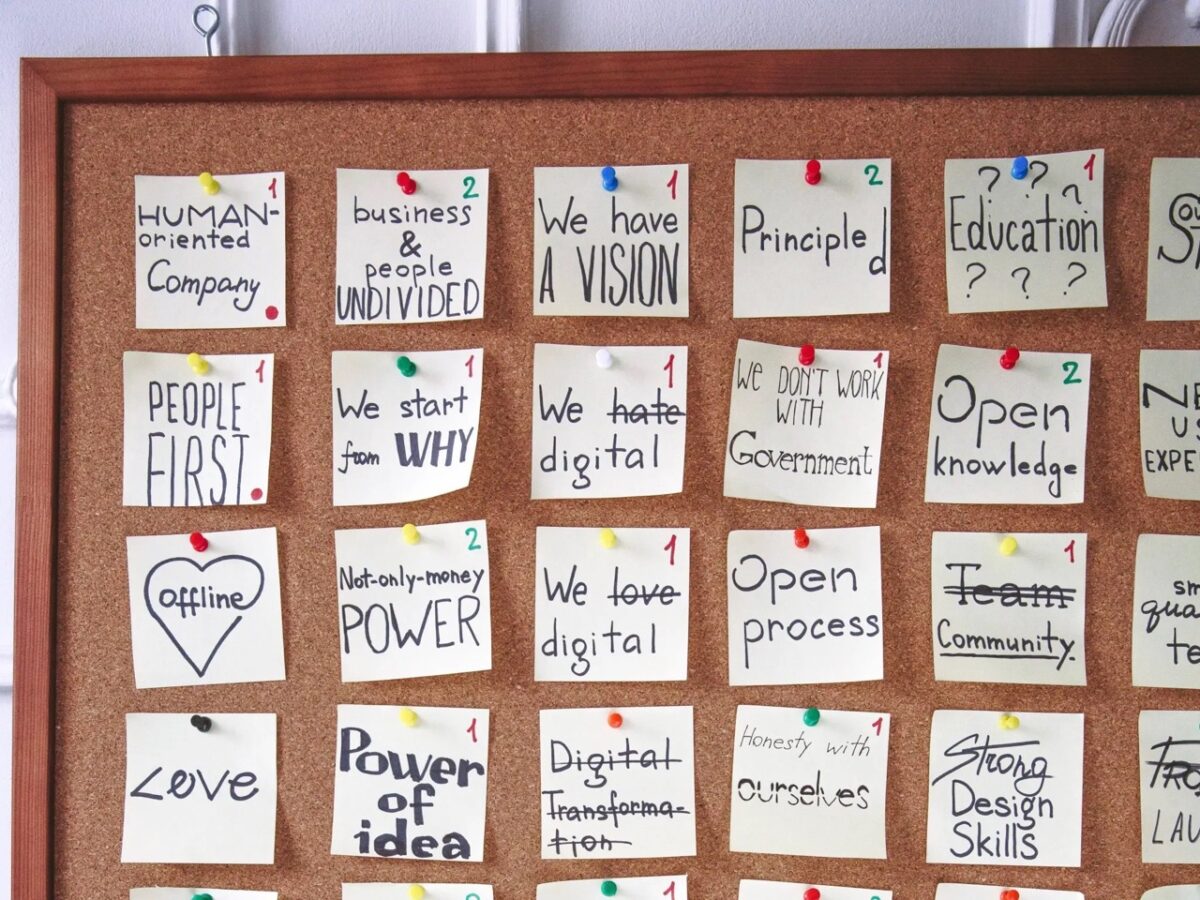 1
HUMAN-
oriented
Company
2
business
&
people
UNDIVIDED
1
We have
A VISION
2
Principled
1
? ? ?
Education
? ? ?
1
PEOPLE
FIRST
1
We start
from WHY
1
We hate
digital
1
We DON'T WORK
WITH
Government
2
Open
knowledge
offline
2
Not-only-money
POWER
1
We love
digital
Open
process
1
Team
Community.
Love
1
Power
of
idea
Digital
Transforma-
tion
1
Honesty with
ourselves
Strong
Design
Skills
2
1